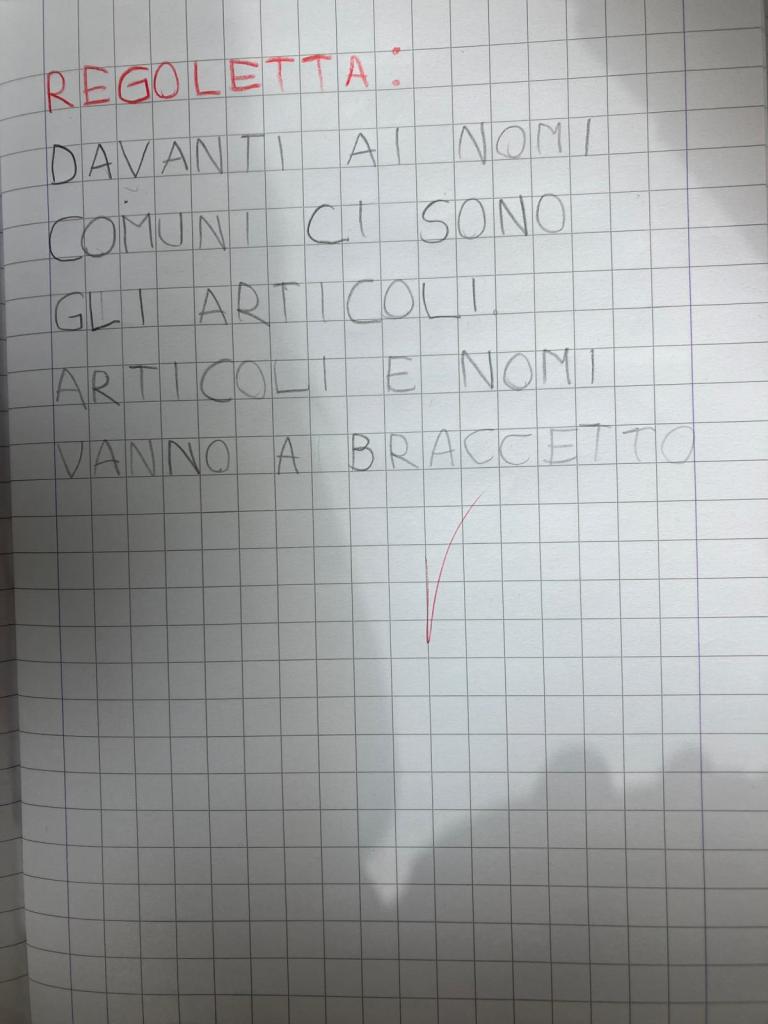 REGOLETTA:
DAVANTI AI NOMI
COMUNI CI SONO
GLI ARTICOLI.
ARTICOLI E NOMI
VANNO A BRACCETTO